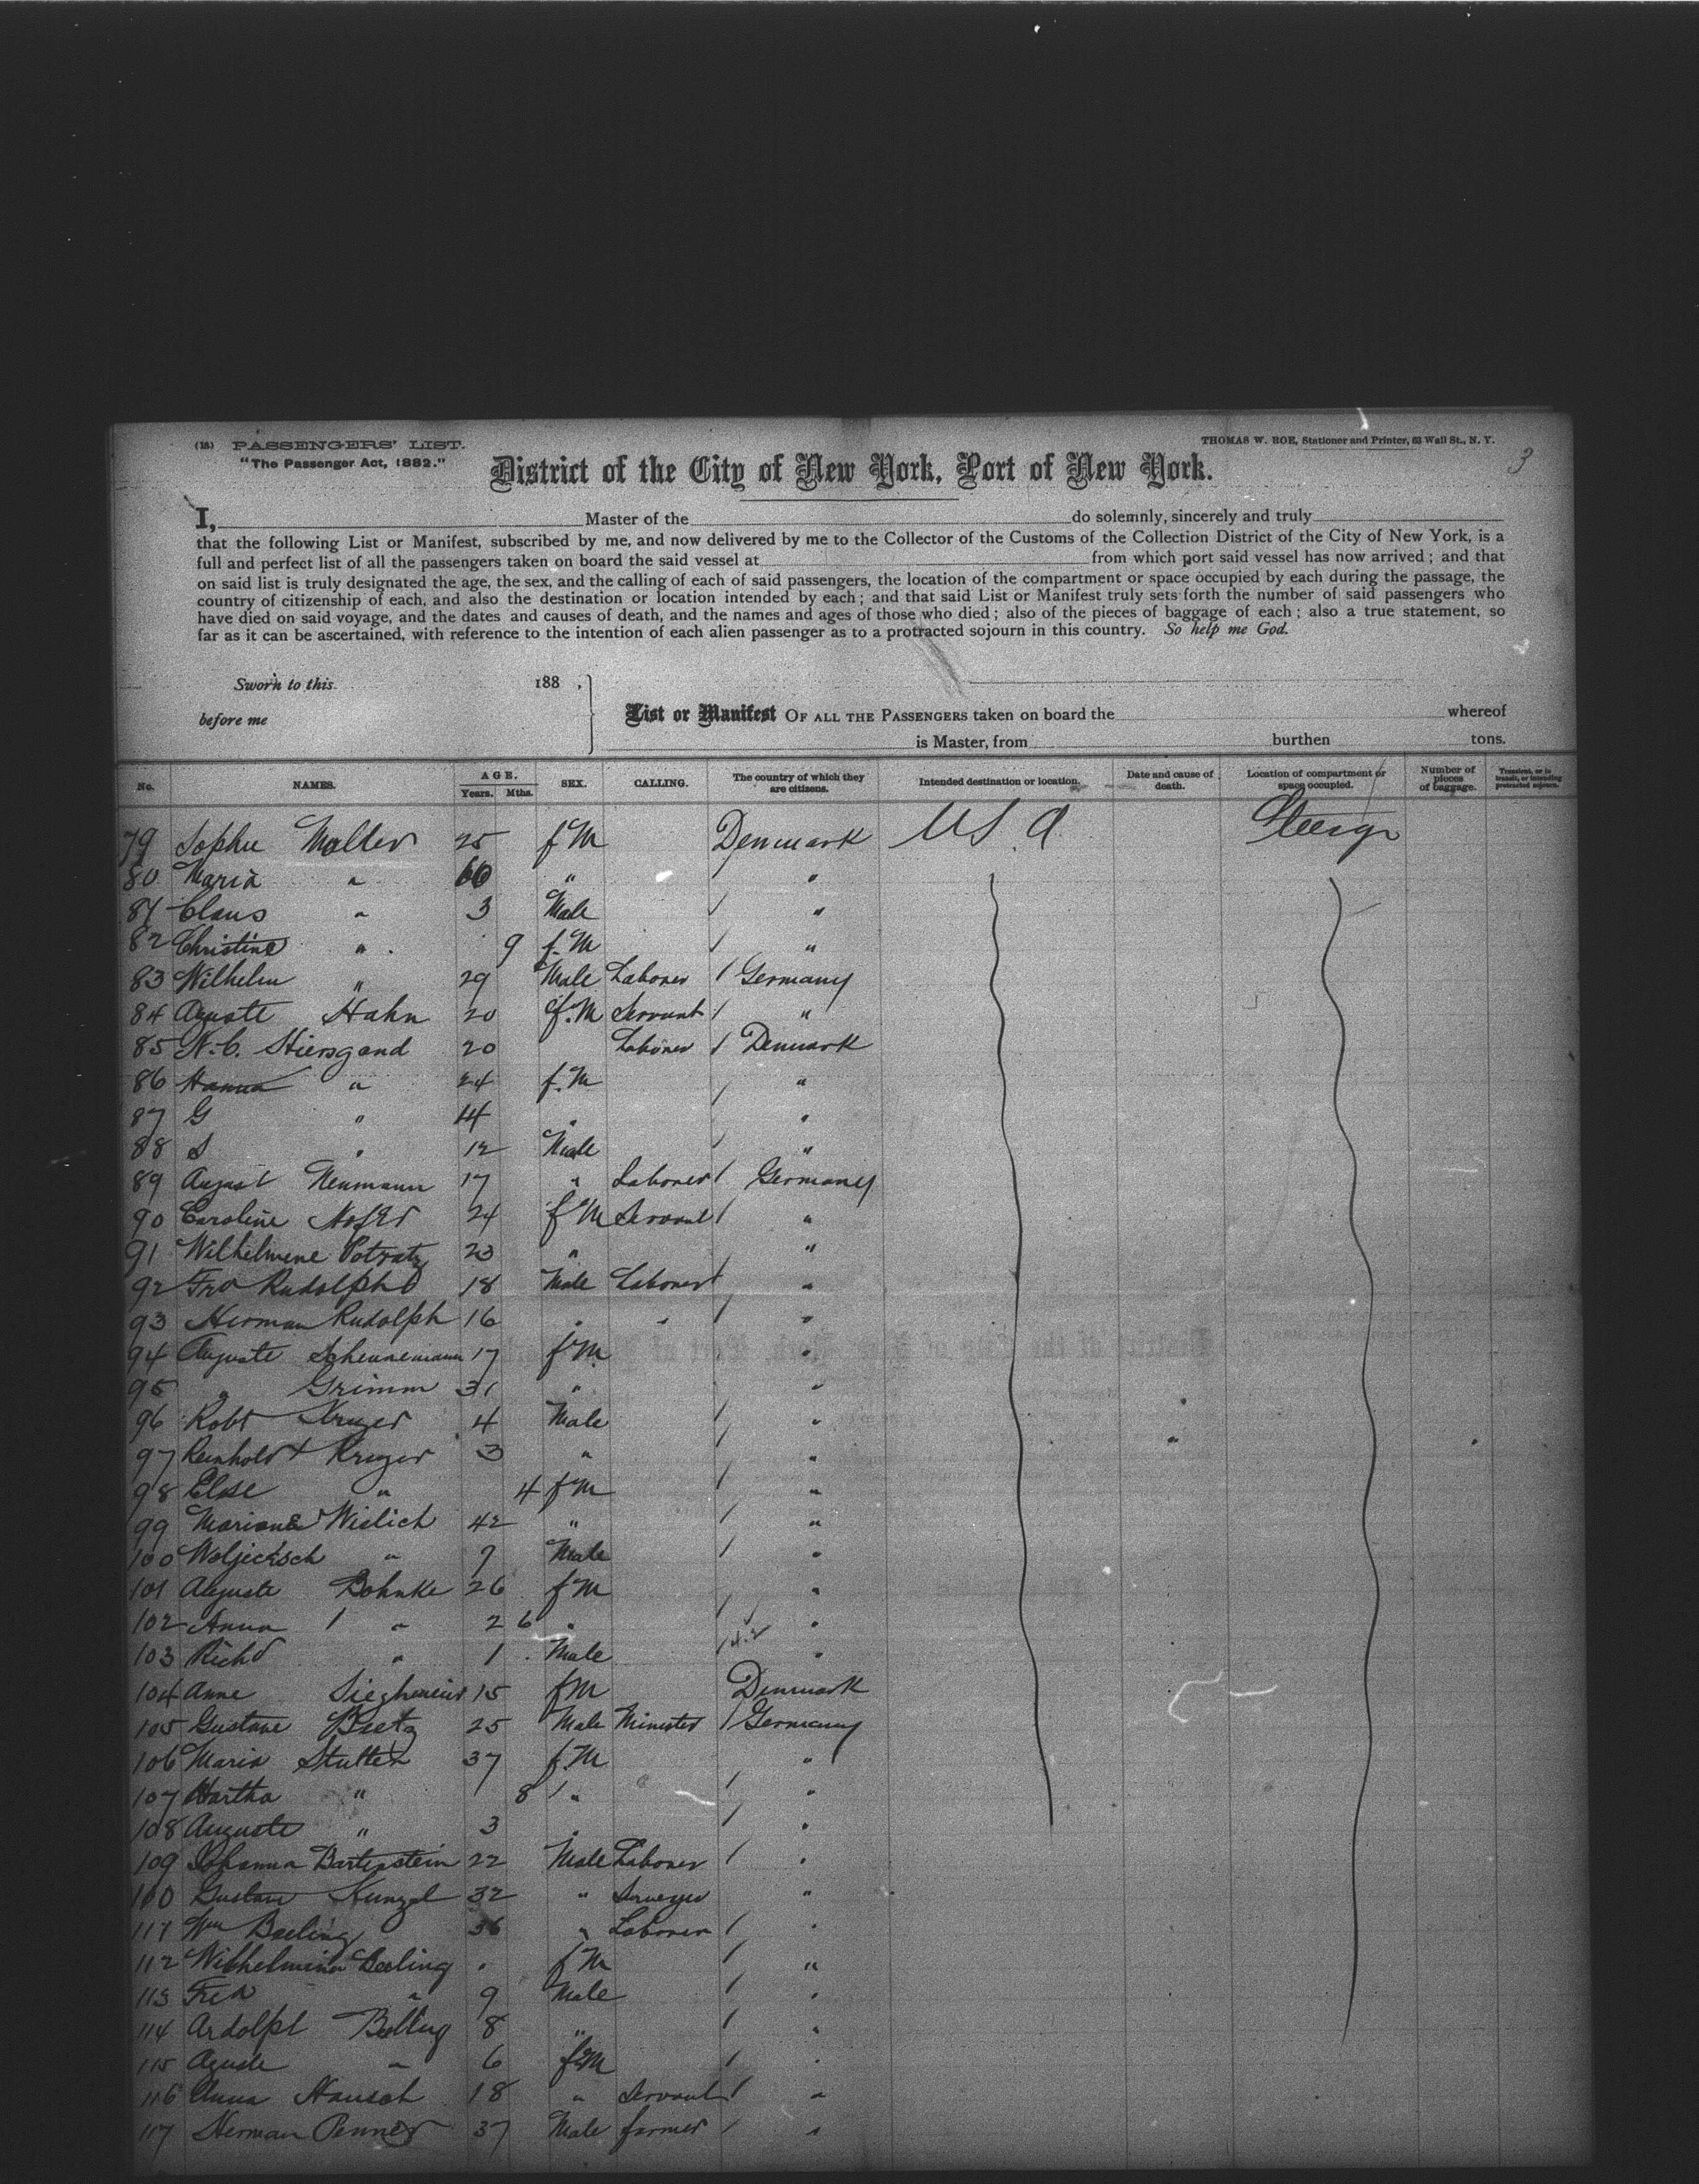 (18) PASSENGERS' LIST.
THOMAS W. ROE, Stationer and Printer, 63 Wall St., N. Y.
"The Passenger Act, 1882."
3
District of the City of New York, Port of New York.
I, Master of the do solemnly, sincerely and truly
that the following List or Manifest, subscribed by me, and now delivered by me to the Collector of the Customs of the Collection District of the City of New York, is a
full and perfect list of all the passengers taken on board the said vessel at from which port said vessel has now arrived; and that
on said list is truly designated the age, the sex, and the calling of each of said passengers, the location of the compartment or space occupied by each during the passage, the
country of citizenship of each, and also the destination or location intended by each; and that said List or Manifest truly sets forth the number of said passengers who
have died on said voyage, and the dates and causes of death, and the names and ages of those who died; also of the pieces of baggage of each; also a true statement, so
far as it can be ascertained, with reference to the intention of each alien passenger as to a protracted sojourn in this country. So help me God.
Sworn to this 188 ,
before me
List or Manifest OF ALL THE PASSENGERS taken on board the whereof
is Master, from burthen tons.
No. NAMES. AGE. Years. Mths. SEX. CALLING. The country of which they are citizens. Intended destination or location. Date and cause of death. Location of compartment or space occupied. Number of pieces of baggage. Transient, or in transit, or intending protracted sojourn.
79 Sophie Moller 25 f M Denmark U S A
80 Maria " 60 " "
81 Claus " 3 Male / "
82 Christine " 9 f. M / "
83 Wilhelm " 29 Male Laborer / Germany
84 Auguste Hahn 20 f. M Servant / "
85 N. C. 20 Laborer / Denmark
86 Hanna " 24 f. M / "
87 G " 14 " "
88 S " 12 Male / "
89 August Neumann 17 " Laborer / Germany
90 Caroline 24 f M Servant / "
91 Wilhelmine Potratz 23 " "
92 Rudolph 18 Male Laborer / "
93 Herman Rudolph 16 " " / "
94 Auguste Scheunemann 17 f M "
95 " Grimm 31 " "
96 Robt Kruger 4 Male / "
97 Reinhold Kruger 3 " / "
98 Else " 4 f M / "
99 Wislich 42 " / "
100 " 9 Male / "
101 Auguste Bohnke 26 f M "
102 Anna " 2 6 " / "
103 Richd " 1 Male / "
104 Anne 15 f M Denmark
105 Gustave 25 Male Minister / Germany
106 Maria 37 f. M "
107 " 8 " / "
108 Auguste " 3 " / "
109 Johanna Bartenstein 22 Male Laborer / "
110 Gustav Kunzel 32 " Surveyor "
111 Wm Beeling 36 " Laborer / "
112 Wilhelmina Beeling " f M / "
113 Fred " 9 Male / "
114 Ardolph 8 " / "
115 " 6 f M / "
116 Anna Hausch 18 " Servant / "
117 Herman Penner 37 Male farmer / "